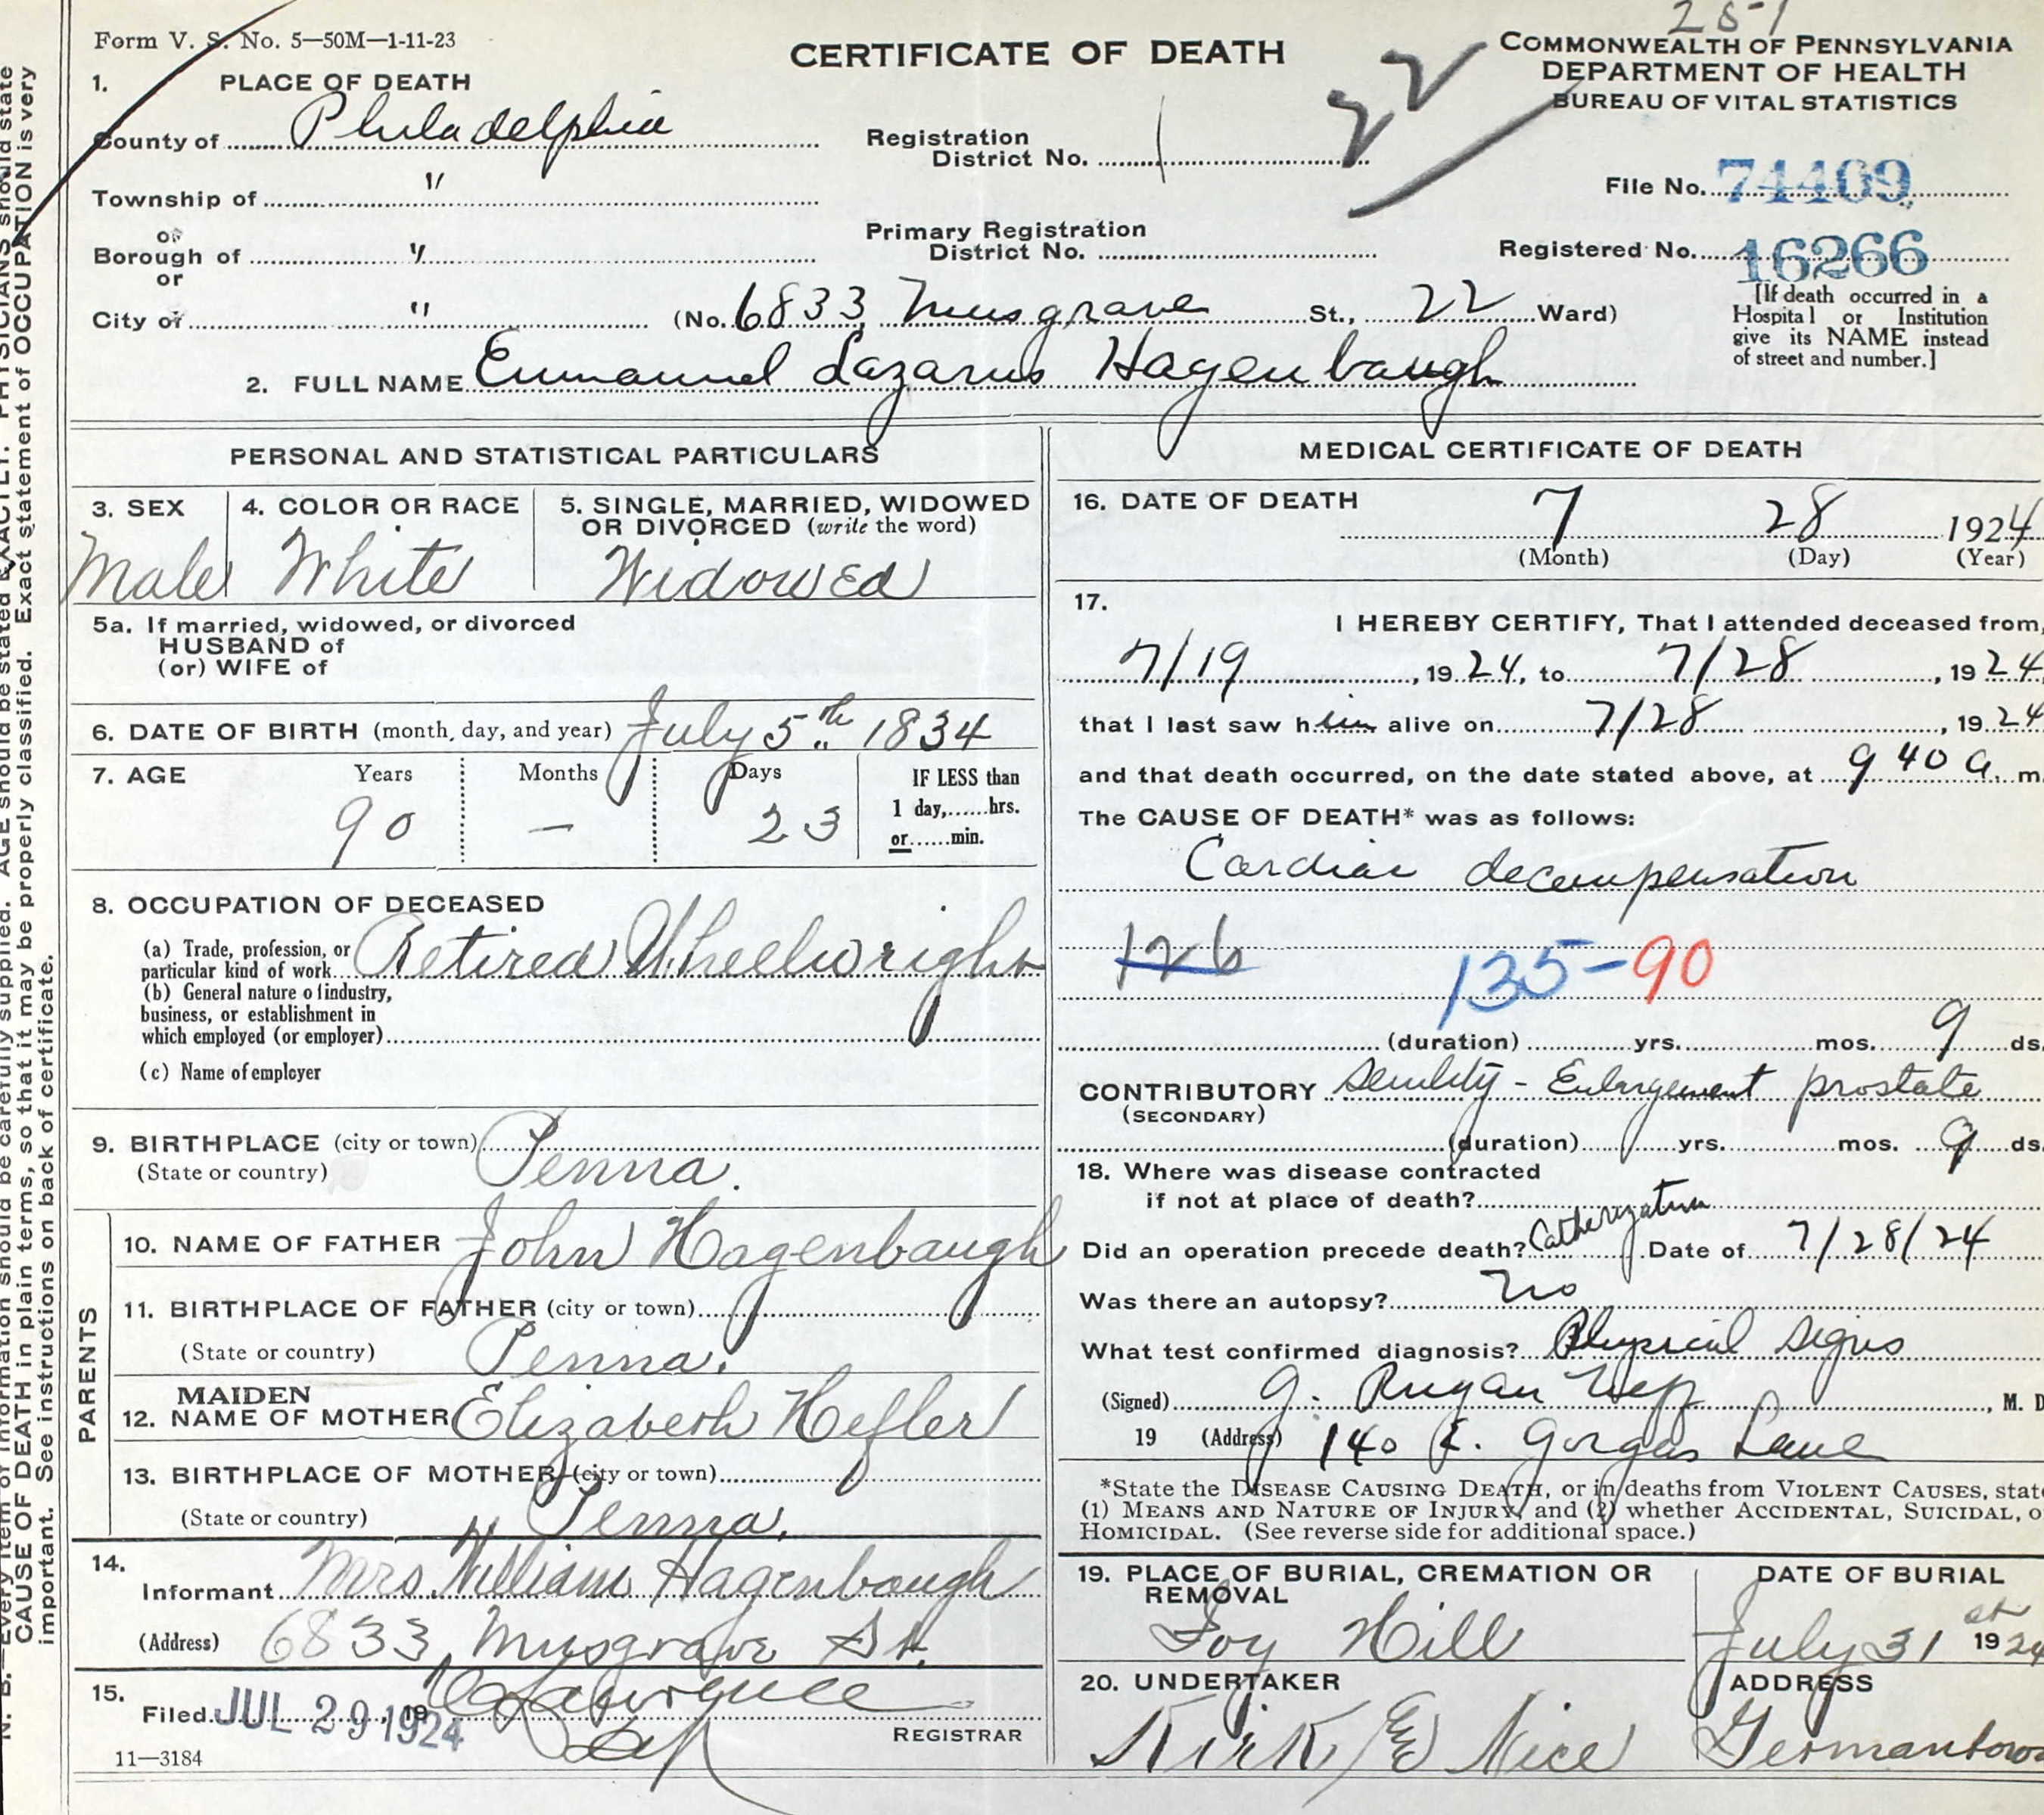 251
Form V. S. No. 5—50M—1-11-23
CERTIFICATE OF DEATH
COMMONWEALTH OF PENNSYLVANIA
DEPARTMENT OF HEALTH
BUREAU OF VITAL STATISTICS
22
1. PLACE OF DEATH
County of Philadelphia
Registration District No. 1
File No. 74409
Township of "
or
Borough of "
Primary Registration District No.
Registered No. 16266
or
City of " (No. 6833 Musgrave St., 22 Ward)
[If death occurred in a Hospital or Institution give its NAME instead of street and number.]
2. FULL NAME Emmanuel Lazarus Hagenbaugh
PERSONAL AND STATISTICAL PARTICULARS
3. SEX
Male
4. COLOR OR RACE
White
5. SINGLE, MARRIED, WIDOWED
OR DIVORCED (write the word)
Widowed
5a. If married, widowed, or divorced
HUSBAND of
(or) WIFE of
6. DATE OF BIRTH (month, day, and year) July 5th 1834
7. AGE Years Months Days IF LESS than
90 — 23 1 day,......hrs.
or......min.
8. OCCUPATION OF DECEASED
(a) Trade, profession, or
particular kind of work Retired Wheelwright
(b) General nature of industry,
business, or establishment in
which employed (or employer)
(c) Name of employer
9. BIRTHPLACE (city or town)
(State or country) Penna.
PARENTS
10. NAME OF FATHER John Hagenbaugh
11. BIRTHPLACE OF FATHER (city or town)
(State or country) Penna.
12. MAIDEN NAME OF MOTHER Elizabeth Hefler
13. BIRTHPLACE OF MOTHER (city or town)
(State or country) Penna.
14.
Informant Mrs. William Hagenbaugh
(Address) 6833 Musgrave St.
15.
Filed JUL 29 1924, 19
REGISTRAR
11—3184
MEDICAL CERTIFICATE OF DEATH
16. DATE OF DEATH
7 28 1924
(Month) (Day) (Year)
17.
I HEREBY CERTIFY, That I attended deceased from,
7/19, 1924, to 7/28, 1924,
that I last saw him alive on 7/28, 1924
and that death occurred, on the date stated above, at 9 40 a. m
The CAUSE OF DEATH* was as follows:
Cardiac decompensation
126
135-90
(duration) yrs. mos. 9 ds.
CONTRIBUTORY Senility - Enlargement prostate
(SECONDARY)
(duration) yrs. mos. 9 ds.
18. Where was disease contracted
if not at place of death?
Did an operation precede death? Catherization Date of 7/28/24
Was there an autopsy? No
What test confirmed diagnosis? Physical signs
(Signed) G. Rugan Nep, M. D
19 (Address) 140 E. Gorgas Lane
*State the DISEASE CAUSING DEATH, or in deaths from VIOLENT CAUSES, state
(1) MEANS AND NATURE OF INJURY, and (2) whether ACCIDENTAL, SUICIDAL, o
HOMICIDAL. (See reverse side for additional space.)
19. PLACE OF BURIAL, CREMATION OR
REMOVAL
Ivy Hill
DATE OF BURIAL
July 31 st 1924
20. UNDERTAKER
Kirk & Nice
ADDRESS
Germantown
N. B.—Every item of information should be carefully supplied. AGE should be stated EXACTLY. PHYSICIANS should state
CAUSE OF DEATH in plain terms, so that it may be properly classified. Exact statement of OCCUPATION is very
important. See instructions on back of certificate.